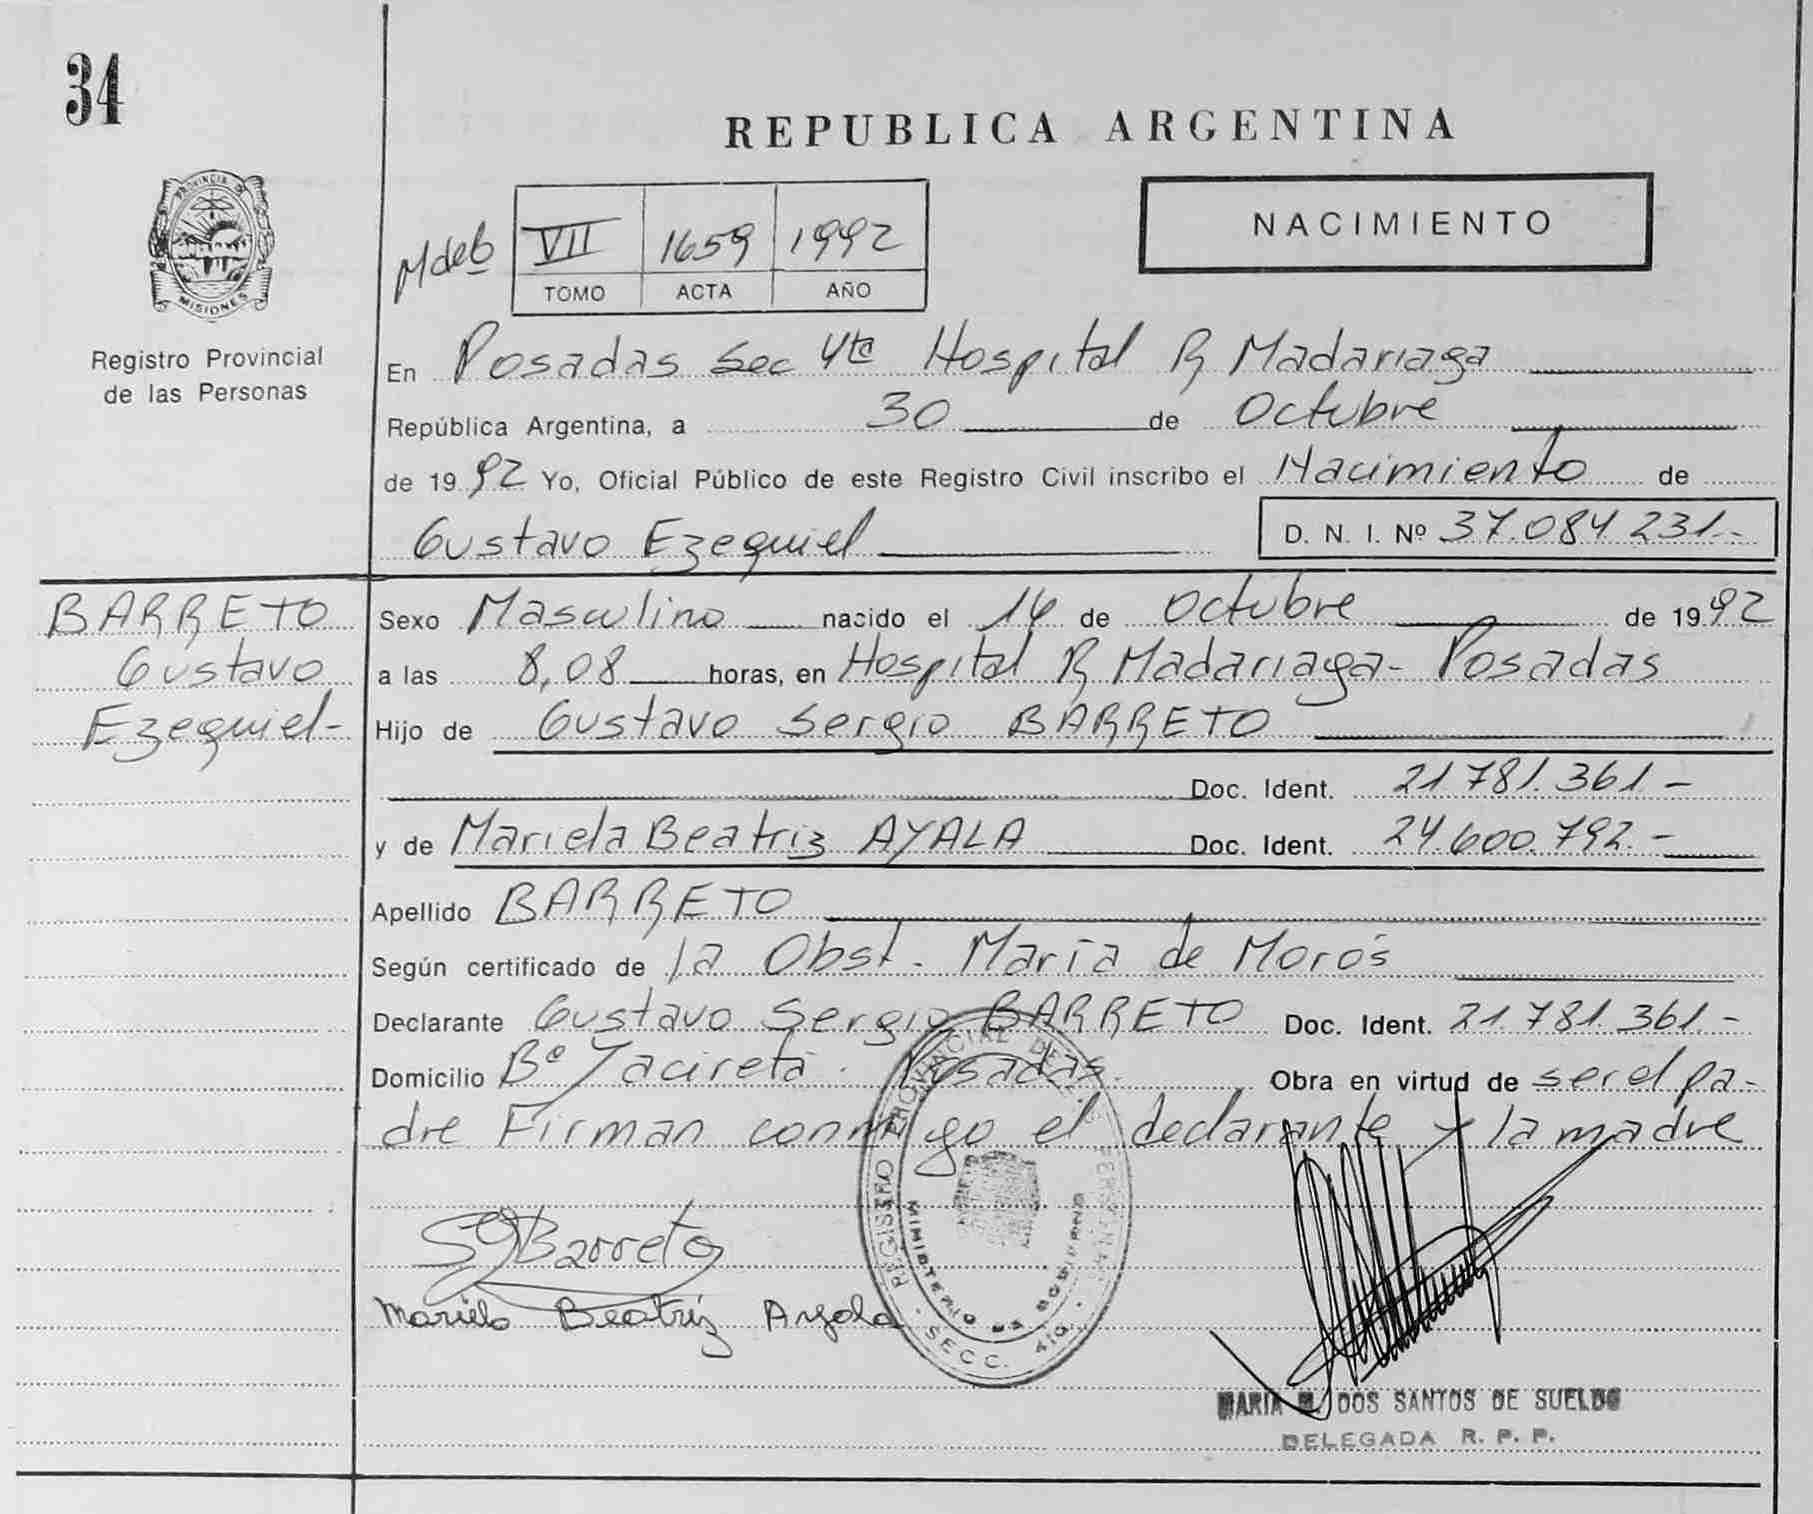 34
REPUBLICA ARGENTINA
PROVINCIA DE
MISIONES
Registro Provincial
de las Personas
VII 1659 1992
TOMO ACTA AÑO
NACIMIENTO
En Posadas Sec 4ta Hospital R Madariaga
República Argentina, a 30 de Octubre
de 1992 Yo, Oficial Público de este Registro Civil inscribo el Nacimiento de
Gustavo Ezequiel D. N. I. Nº 37.084 231.-
BARRETO
Gustavo
Ezequiel-
Sexo Masculino nacido el 14 de Octubre de 1992
a las 8,08 horas, en Hospital R Madariaga- Posadas
Hijo de Gustavo Sergio BARRETO
Doc. Ident. 21 781.361-
y de Mariela Beatriz AYALA Doc. Ident. 24.600.792.-
Apellido BARRETO
Según certificado de la Obst. María de Morós
Declarante Gustavo Sergio BARRETO Doc. Ident. 21.781.361.-
Domicilio Bº Yacireta. Posadas. Obra en virtud de ser el pa-
dre Firman conmigo el declarante y la madre
SgBarreto
Mariela Beatriz Ayala
REGISTRO PROVINCIAL DE LAS PERSONAS
MINISTERIO DE GOBIERNO
SECC. 4ta.
MARIA M. DOS SANTOS DE SUELDO
DELEGADA R. P. P.